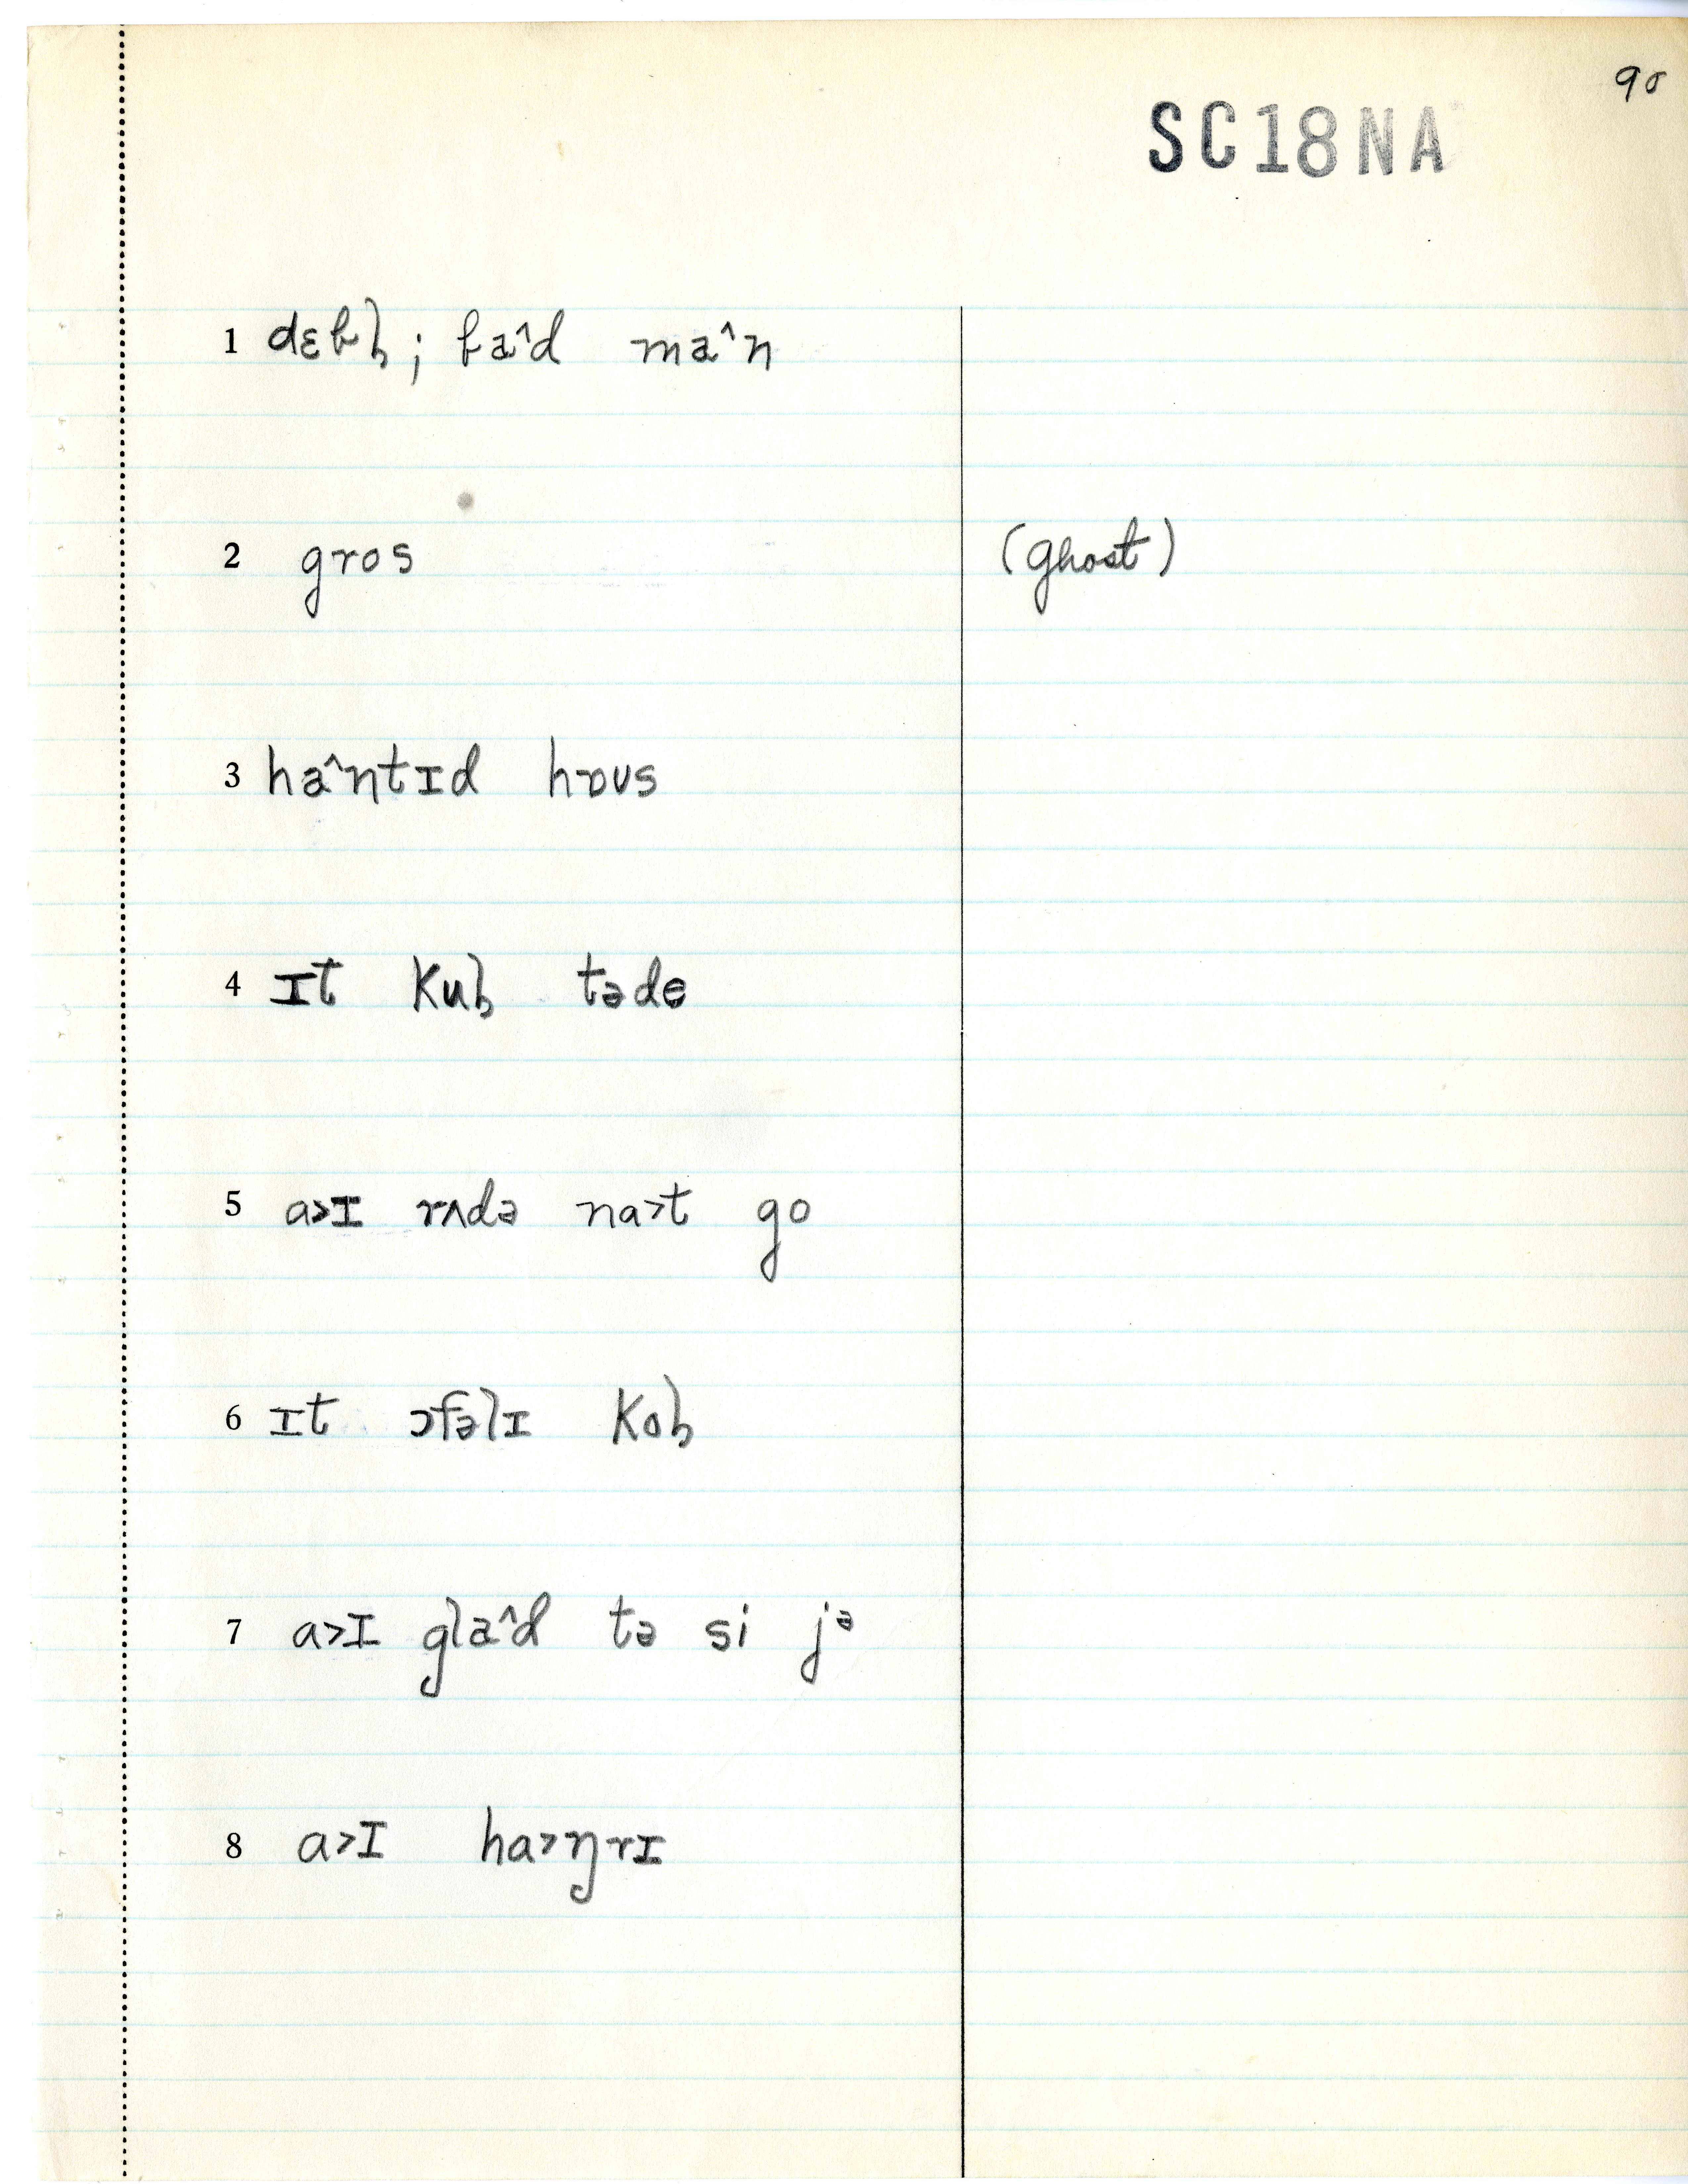 90
SC18NA
1 dɛbl̩ ; ba^d ma^n
2 gros (ghost)
3 ha^ntɪd hɒʊs
4 ɪt kul̩ təde
5 a>ɪ rʌdə na>t go
6 ɪt ɔfəlɪ kol̩
7 a>ɪ gla^d tə si jᵊ
8 a>ɪ ha>ŋrɪ